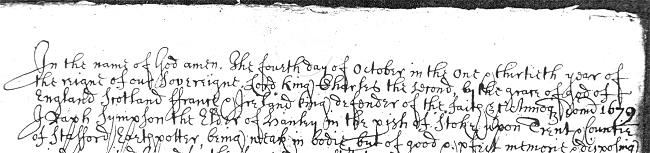 In the name of God amen. The fourth day of October in the One & thirtieth year of
the reigne of our Sovereigne Lord King Charles the second, by the grace of God of
England Scotland ffrance & Ireland King defender of the faith &c Annoq Domi 1679
I Raph Sympson the Elder of Hanley in the pish of Stoke upon Trent & Countie
of Stafford Earthpotter, being weak in bodie but of good & pfect memorie & desposing